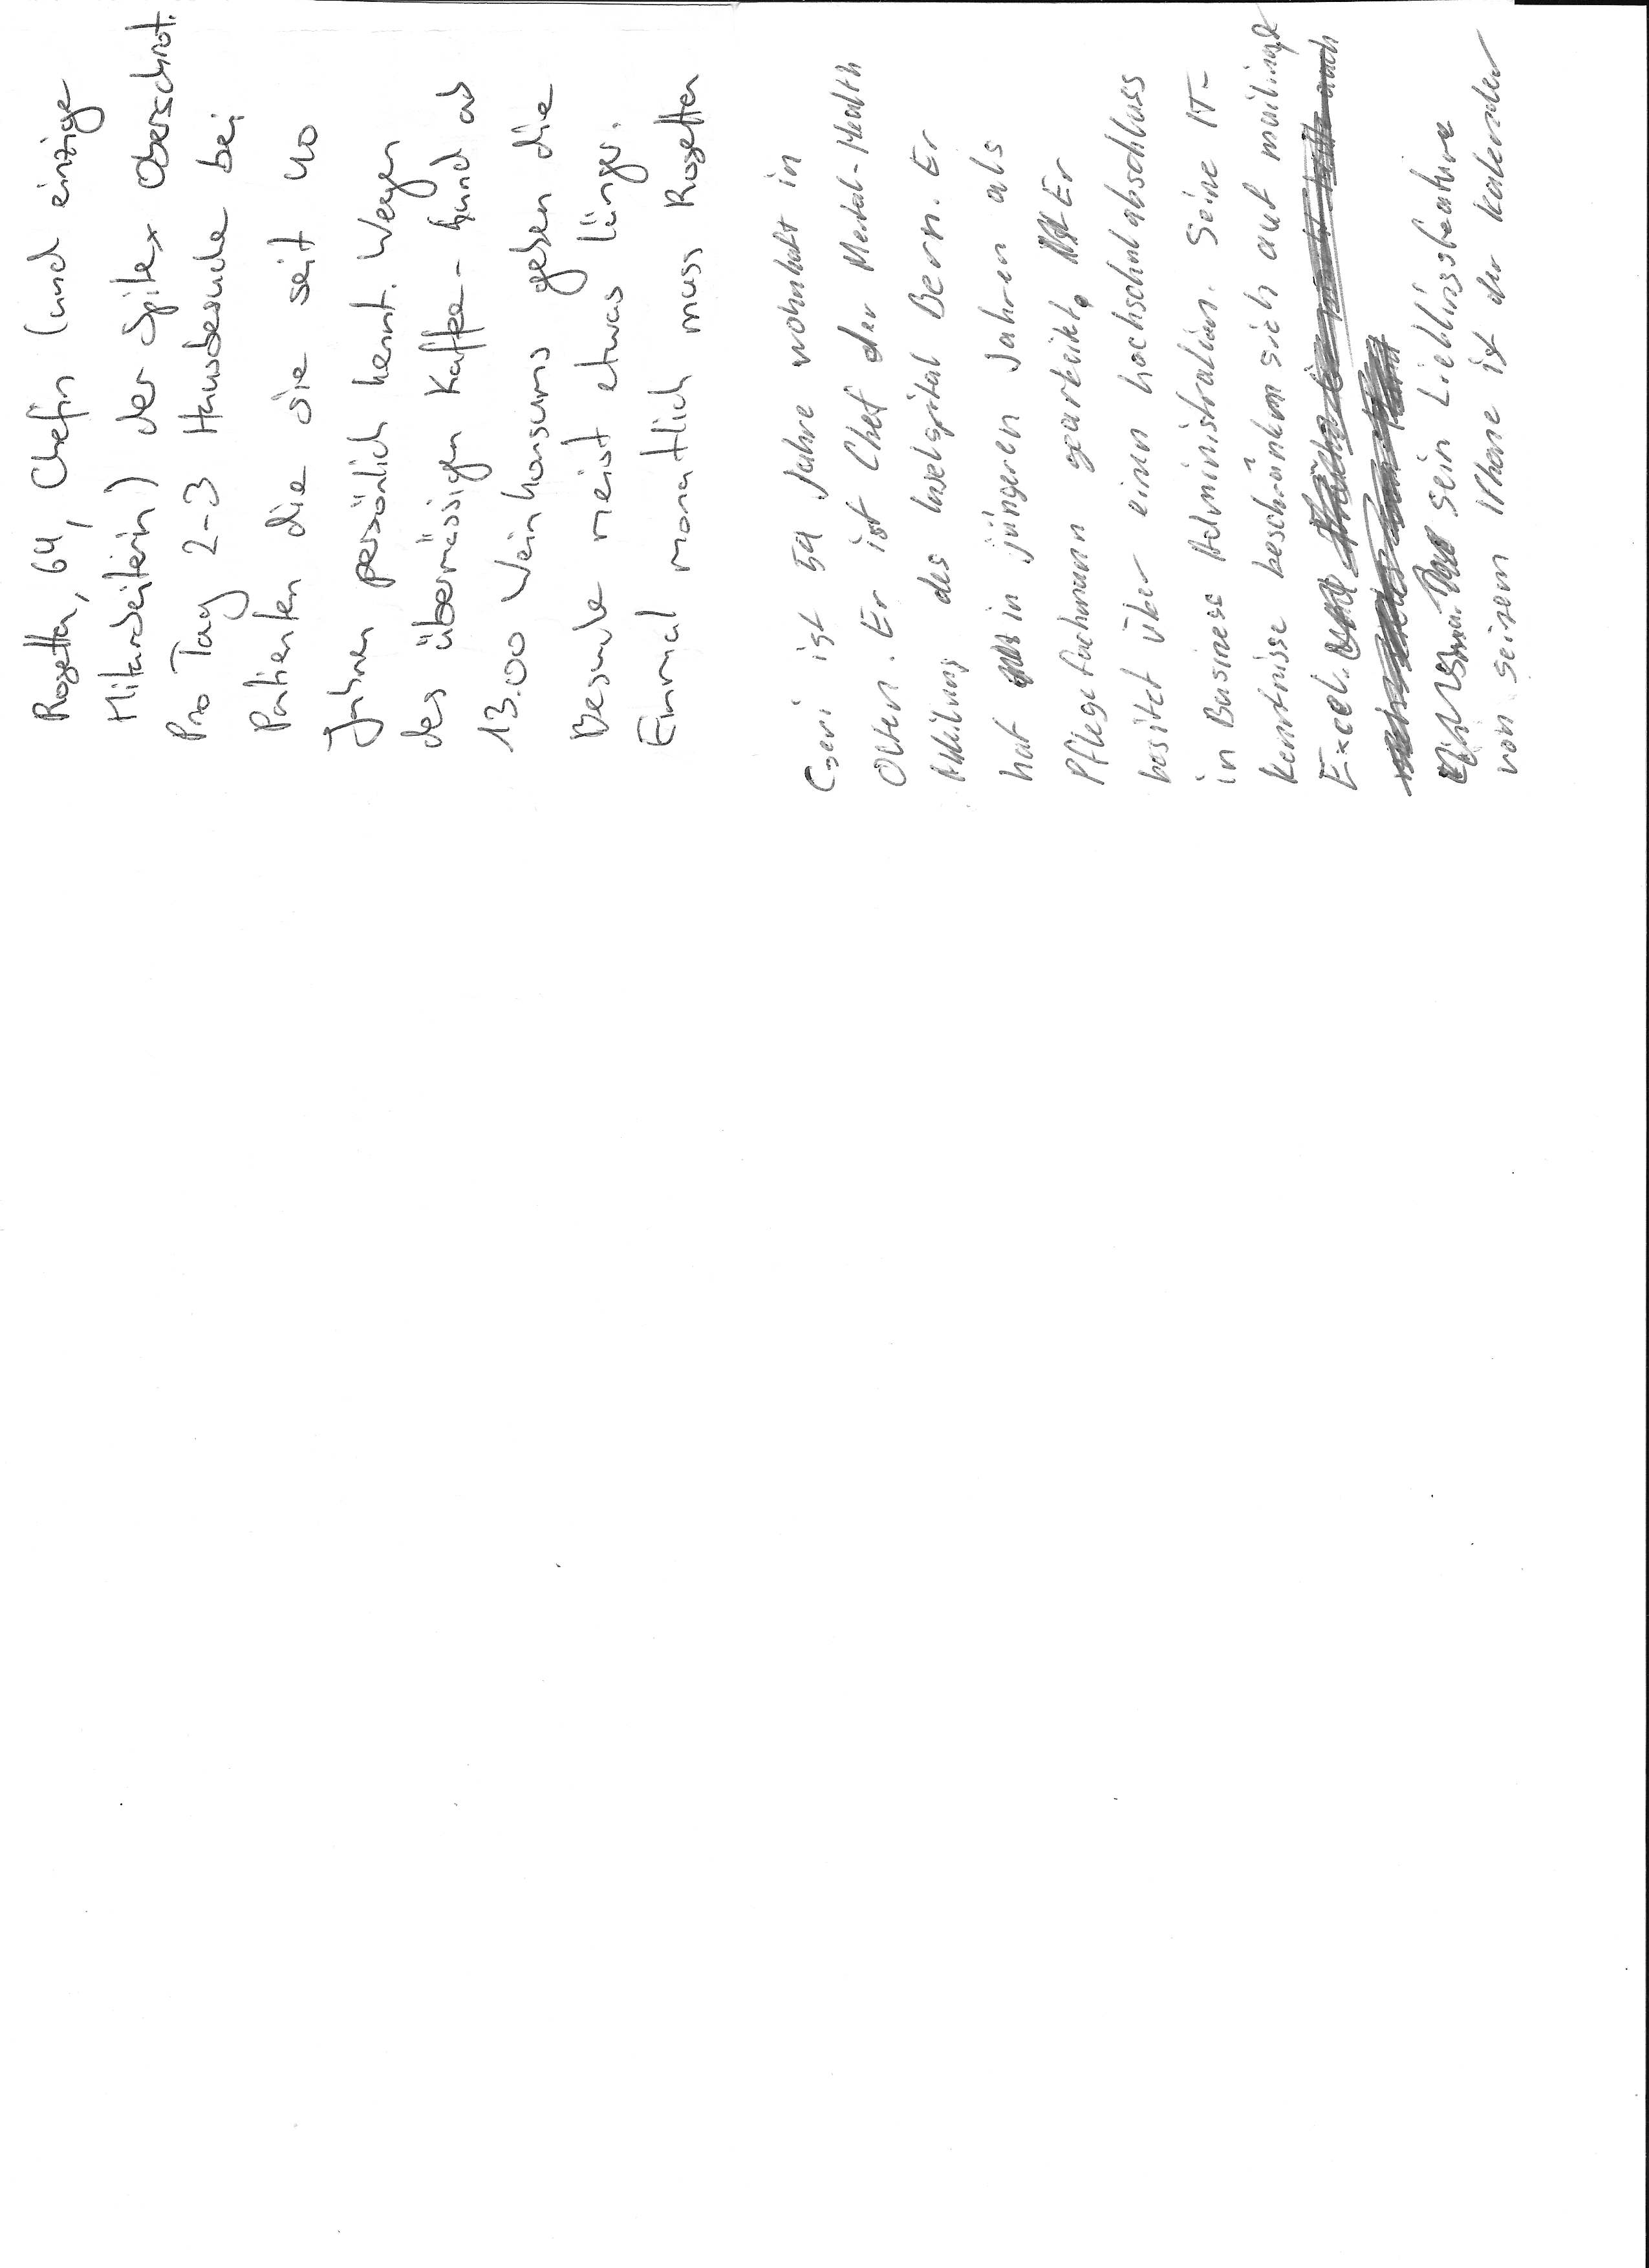 Rosetta, 64, Chefin (und einzige
Mitarbeiterin) der Spitex Oberschrot.
Pro Tag 2-3 Hausbesuche bei
Patienten die sie seit 40
Jahren persönlich kennt. Wegen
des übermässigen Kaffee- hund ab
13.00 Weinkonsums gehen die
Besuche meist etwas länger.
Einmal monatlich muss Rosetta
Geri ist 59 Jahre wohnhaft in
Olten. Er ist Chef der Mental-Health
Abteilung des Inselspital Bern. Er
hat in jüngeren Jahren als
Pflegefachmann gearbeitet. Er
besitzt über einen Hochschulabschluss
in Business Administration. Seine IT-
Kenntnisse beschränken sich auf mailing &
Excel.
Sein Lieblingsfeature
von seinem IPhone ist der Kalender